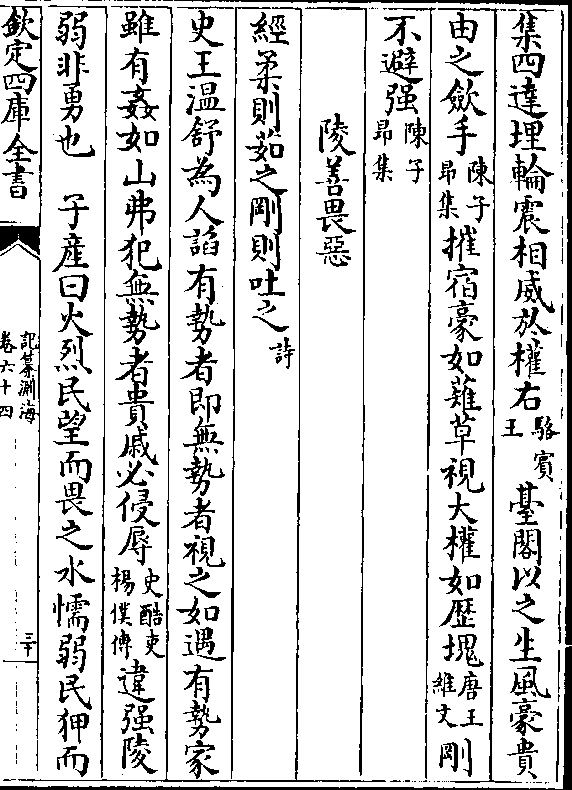 集四達埋輪震相威於權右駱賓王臺閣以之生風豪貴
由之歛手陳子昂集摧宿豪如薙草視大權如歴塊唐王維文剛
不避强陳子昂集
陵善畏惡
經柔則茹之剛則吐之詩
史王温舒為人謟有勢者即無勢者視之如遇有勢家
雖有姦如山弗犯無勢者貴戚必侵辱史酷吏楊僕傳違强陵
弱非勇也　子産曰火烈民望而畏之水懦弱民狎而
欽定四庫全書
記纂淵海
卷六十四
三十